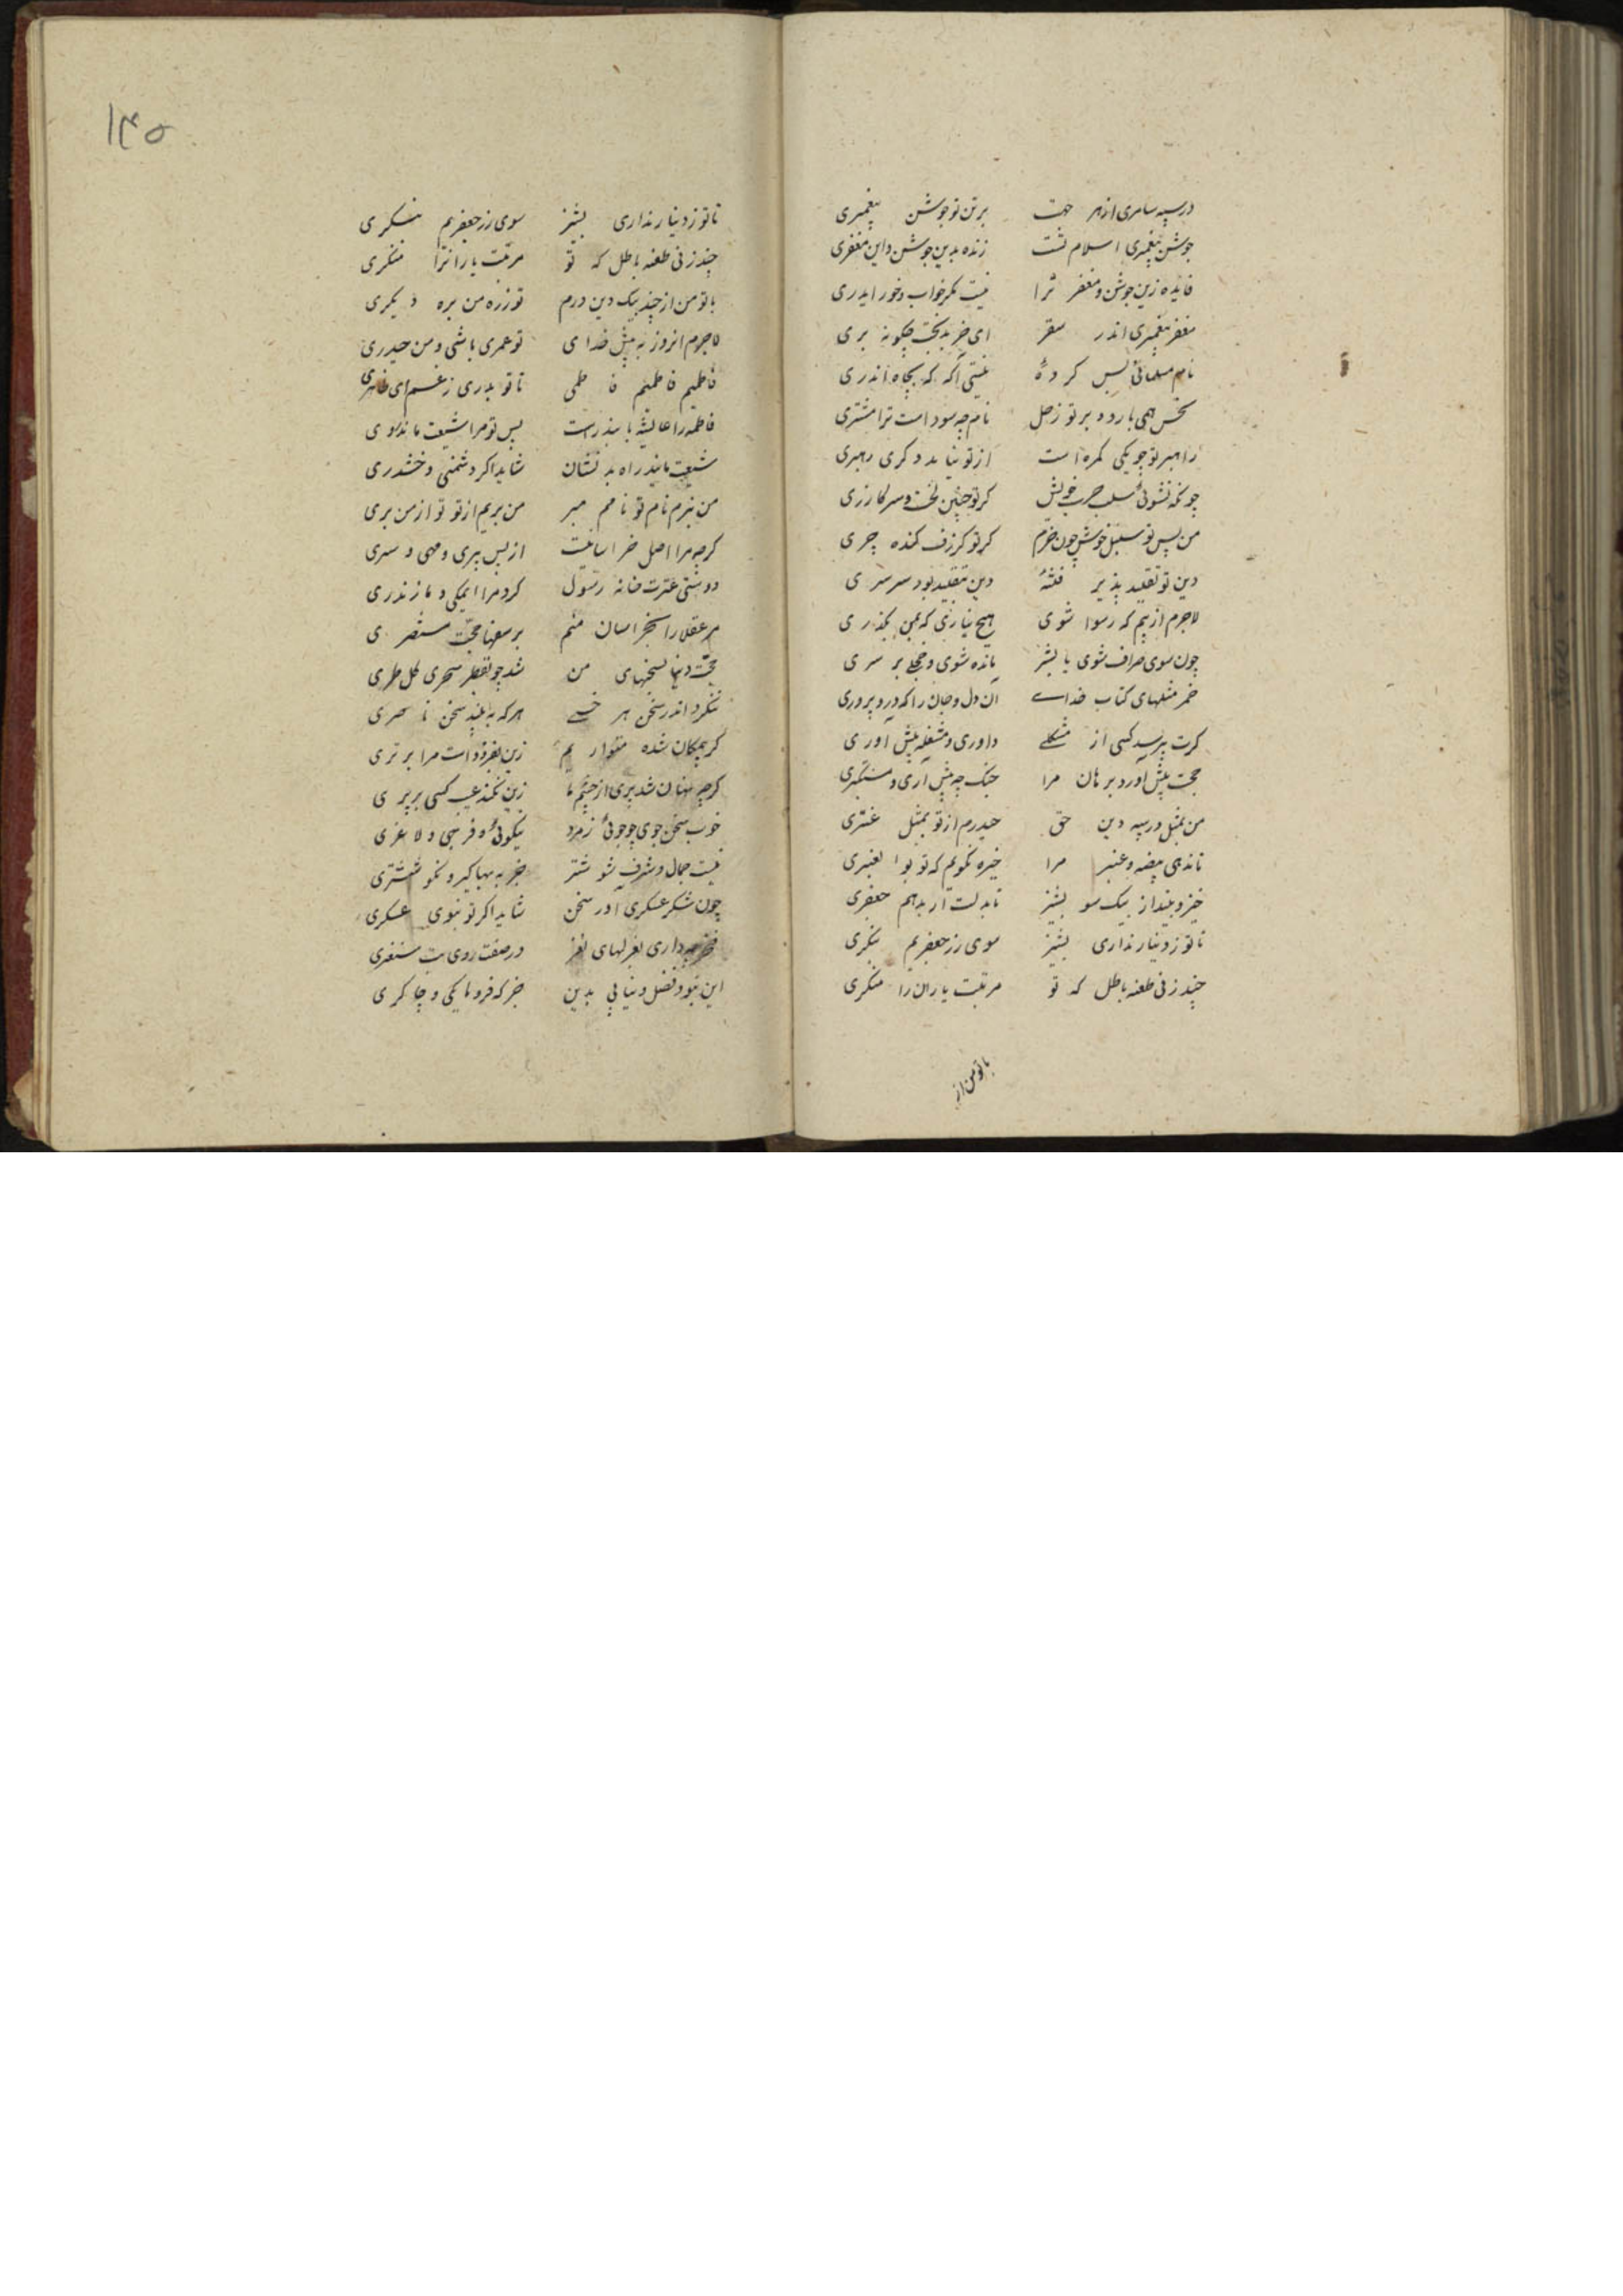 درسپه سامری از بهر جهت برتن تو جوشن پیغمبری
جوشن پیغمبری اسلام تست زنده بدین جوشن و این مغفری
فایده زین جوشن و مغفر ترا نیست مگر خواب و خور ایدری
مغفر پیغمبری اندر سقر ای خر بدبخت چگونه بری
نام مسلمانی بس کرده نیستی آگه که بچاه اندری
نحس همی بارد بر تو زحل نام چه سود است ترا مشتری
راهبر تو چو یکی گمره است از تو نیاید دگری رهبری
چونکه نشوئی سلب چرب خویش گر تو چنین سخت و سره گازری
من پس تو سنبل خوش چون خورم گر تو گرزف کنده چری
دین تو تقلید پذیر فتهٔ دین بتقلید بود سرسری
لاجرم از بیم که رسوا شوی هیچ نیاری که بمن بگذری
چون سوی صراف شوی با پشیز مانده شوی و خجلی بر سری
خمر مثلهای کتاب خداست آن دل و جان را که درو پروری
کرت بپرسد کسی از مشکلی داوری و مشغله پیش آوری
حجت پیش آور و برهان مرا جنک چه پیش آری و مستکبری
من بمثل در سپه دین حق حیدرم ار تو بمثل عنتری
تا ندهی بیضه و عنبر مرا خیره نگویم که تو بوالعنبری
خیز و بینداز بیک سو پشیز تا بدلت زر بدهم جعفری
تا تو ز دینار نداری پشیز سوی زر جعفریم ننگری
چند زنی طعنه باطل که تو مرتبت یاران را منکری
با تو من از
۱۴۵
تا تو ز دینار نداری پشیز سوی زر جعفریم ننگری
چند زنی طعنه باطل که تو مرتبت یارانرا منکری
با تو من از چند بیک دین درم تو ز ره من بره دیگری
لاجرم آنروز به پیش خدای تو عمری باشی و من حیدری
فاطمیم فاطمیم فاطمی تا تو بدری ز غم ای ظاهری
فاطمه را عایشه مایندرست پس تو مرا شیعت مایندری
شیعت مایندر اه بد نشان شاید اگر دشمنی و خشندری
من نبرم نام تو نامم مبر من بریم از تو تو از من بری
کرچه مرا اصل خراسانیست از پس پیری و مهی و سری
دوستی عترت خانه رسول کرد مرا یمگی و مازندری
مر عقلا را بخراسان منم بر سفها حجت مستنصری
حجت دنیا بسخنهای من شد چو بقطر سحری گل طری
ننگرد اندر سخن هر خسی هر که ببیند سخن ناصری
گر بیمگان شده متواریم زین بفزوده است مرا برتری
کرچه نهان شد پری از چشم ما زین نکند عیب کسی بر پری
خوب سخن جوی چو جوئی ز مرد نیکوئی و فربهی و لاغری
نیست جمال و شرف شوشتر جز به بها گیر و نکو ششتری
چون شکر عسکری آور سخن شاید اگر تو نبوی عسکری
فخر چه داری بغزلهای نغز در صفت روی بت سنغری
این نبود فضل و نیابی بدین جز که فرومایگی و چاکری